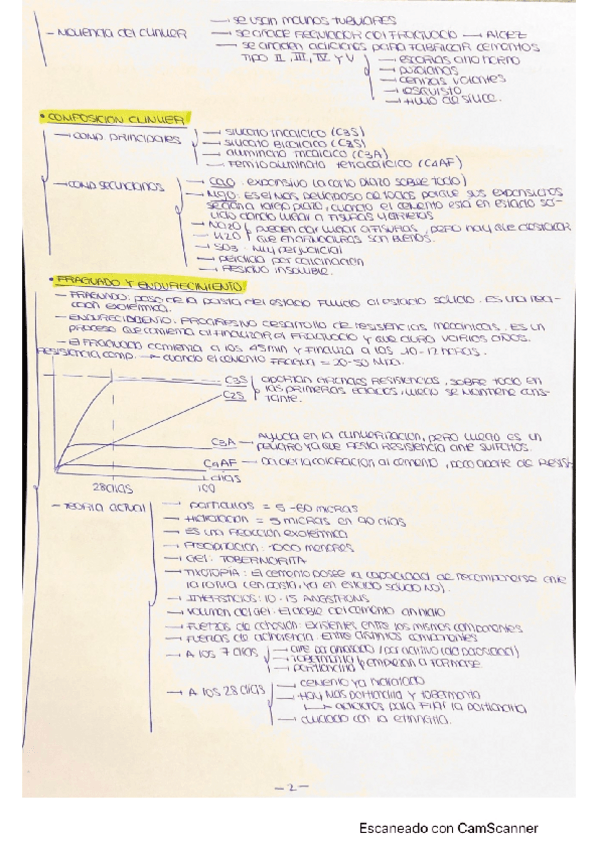 - Molienda del clinker
→ se usan molinos tubulares
→ se añade regulador del fraguado → Aljez
→ se añaden adiciones para fabricar cementos
Tipo II, III, IV y V
→ escorias alto horno
→ puzolanas
→ cenizas volantes
→ esquisto
→ humo de sílice.
• COMPOSICION CLINKER
→ comp. principales
→ silicato tricálcico (C3S)
→ silicato bicálcico (C2S)
→ aluminato tricálcico (C3A)
→ Ferrito aluminato tetracálcico (C4AF)
→ comp. secundarios
→ CaO: expansivo (a corto plazo sobre todo)
→ MgO: es el más peligroso de todos porque sus expansiones
serán a largo plazo, cuando el cemento está en estado só-
lido dando lugar a fisuras y grietas
→ Na2O
→ K2O
pueden dar lugar a fisuras, pero hay que destacar
que en armaduras son buenos.
→ SO3: Muy perjudicial
→ pérdida por calcinación
→ Residuo insoluble.
• FRAGUADO Y ENDURECIMIENTO
- FRAGUADO: paso de la pasta del estado fluido al estado sólido. Es una reac-
ción exotérmica.
- ENDURECIMIENTO: Progresivo desarrollo de resistencias mecánicas. Es un
proceso que comienza al finalizar el fraguado y que dura varios años.
- El fraguado comienza a los 45min y finaliza a los 10-12 horas.
Resistencia comp. → cuando el cemento fragua = 20-50 MPa.
C3S
C2S
aportan grandes resistencias, sobre todo en
las primeras edades, luego se mantiene cons-
tante.
C3A → Ayuda en la clinkerización, pero luego es un
peligro ya que resta resistencia ante sulfatos.
C4AF → da la coloración al cemento, poco aporte de resist.
t días
28 días
- Teoría actual
→ partículas = 5-60 micras
→ Hidratación = 5 micras en 90 días
→ Es una reacción exotérmica
→ Precipitación: 1000 menores
→ Gel: TOBERMORITA
→ TIXOTROPIA: El cemento posee la capacidad de recomponerse ante
la rotura (en pasta, ya en estado sólido NO).
→ INTERSTICIOS: 10-15 ANGSTRONS
→ Volumen del gel: El doble del cemento anhidro
→ Fuerzas de cohesión: Existentes entre los mismos componentes
→ Fuerzas de adherencia: Entre distintos componentes
→ A los 7 días
→ tobermorita
→ portlandita
empiezan a formarse
→ A los 28 días
→ cemento ya hidratado
→ Hay más portlandita y tobermorita
→ adiciones para fijar la portlandita
→ cuidado con la etringita.
- 2 -
Escaneado con CamScanner